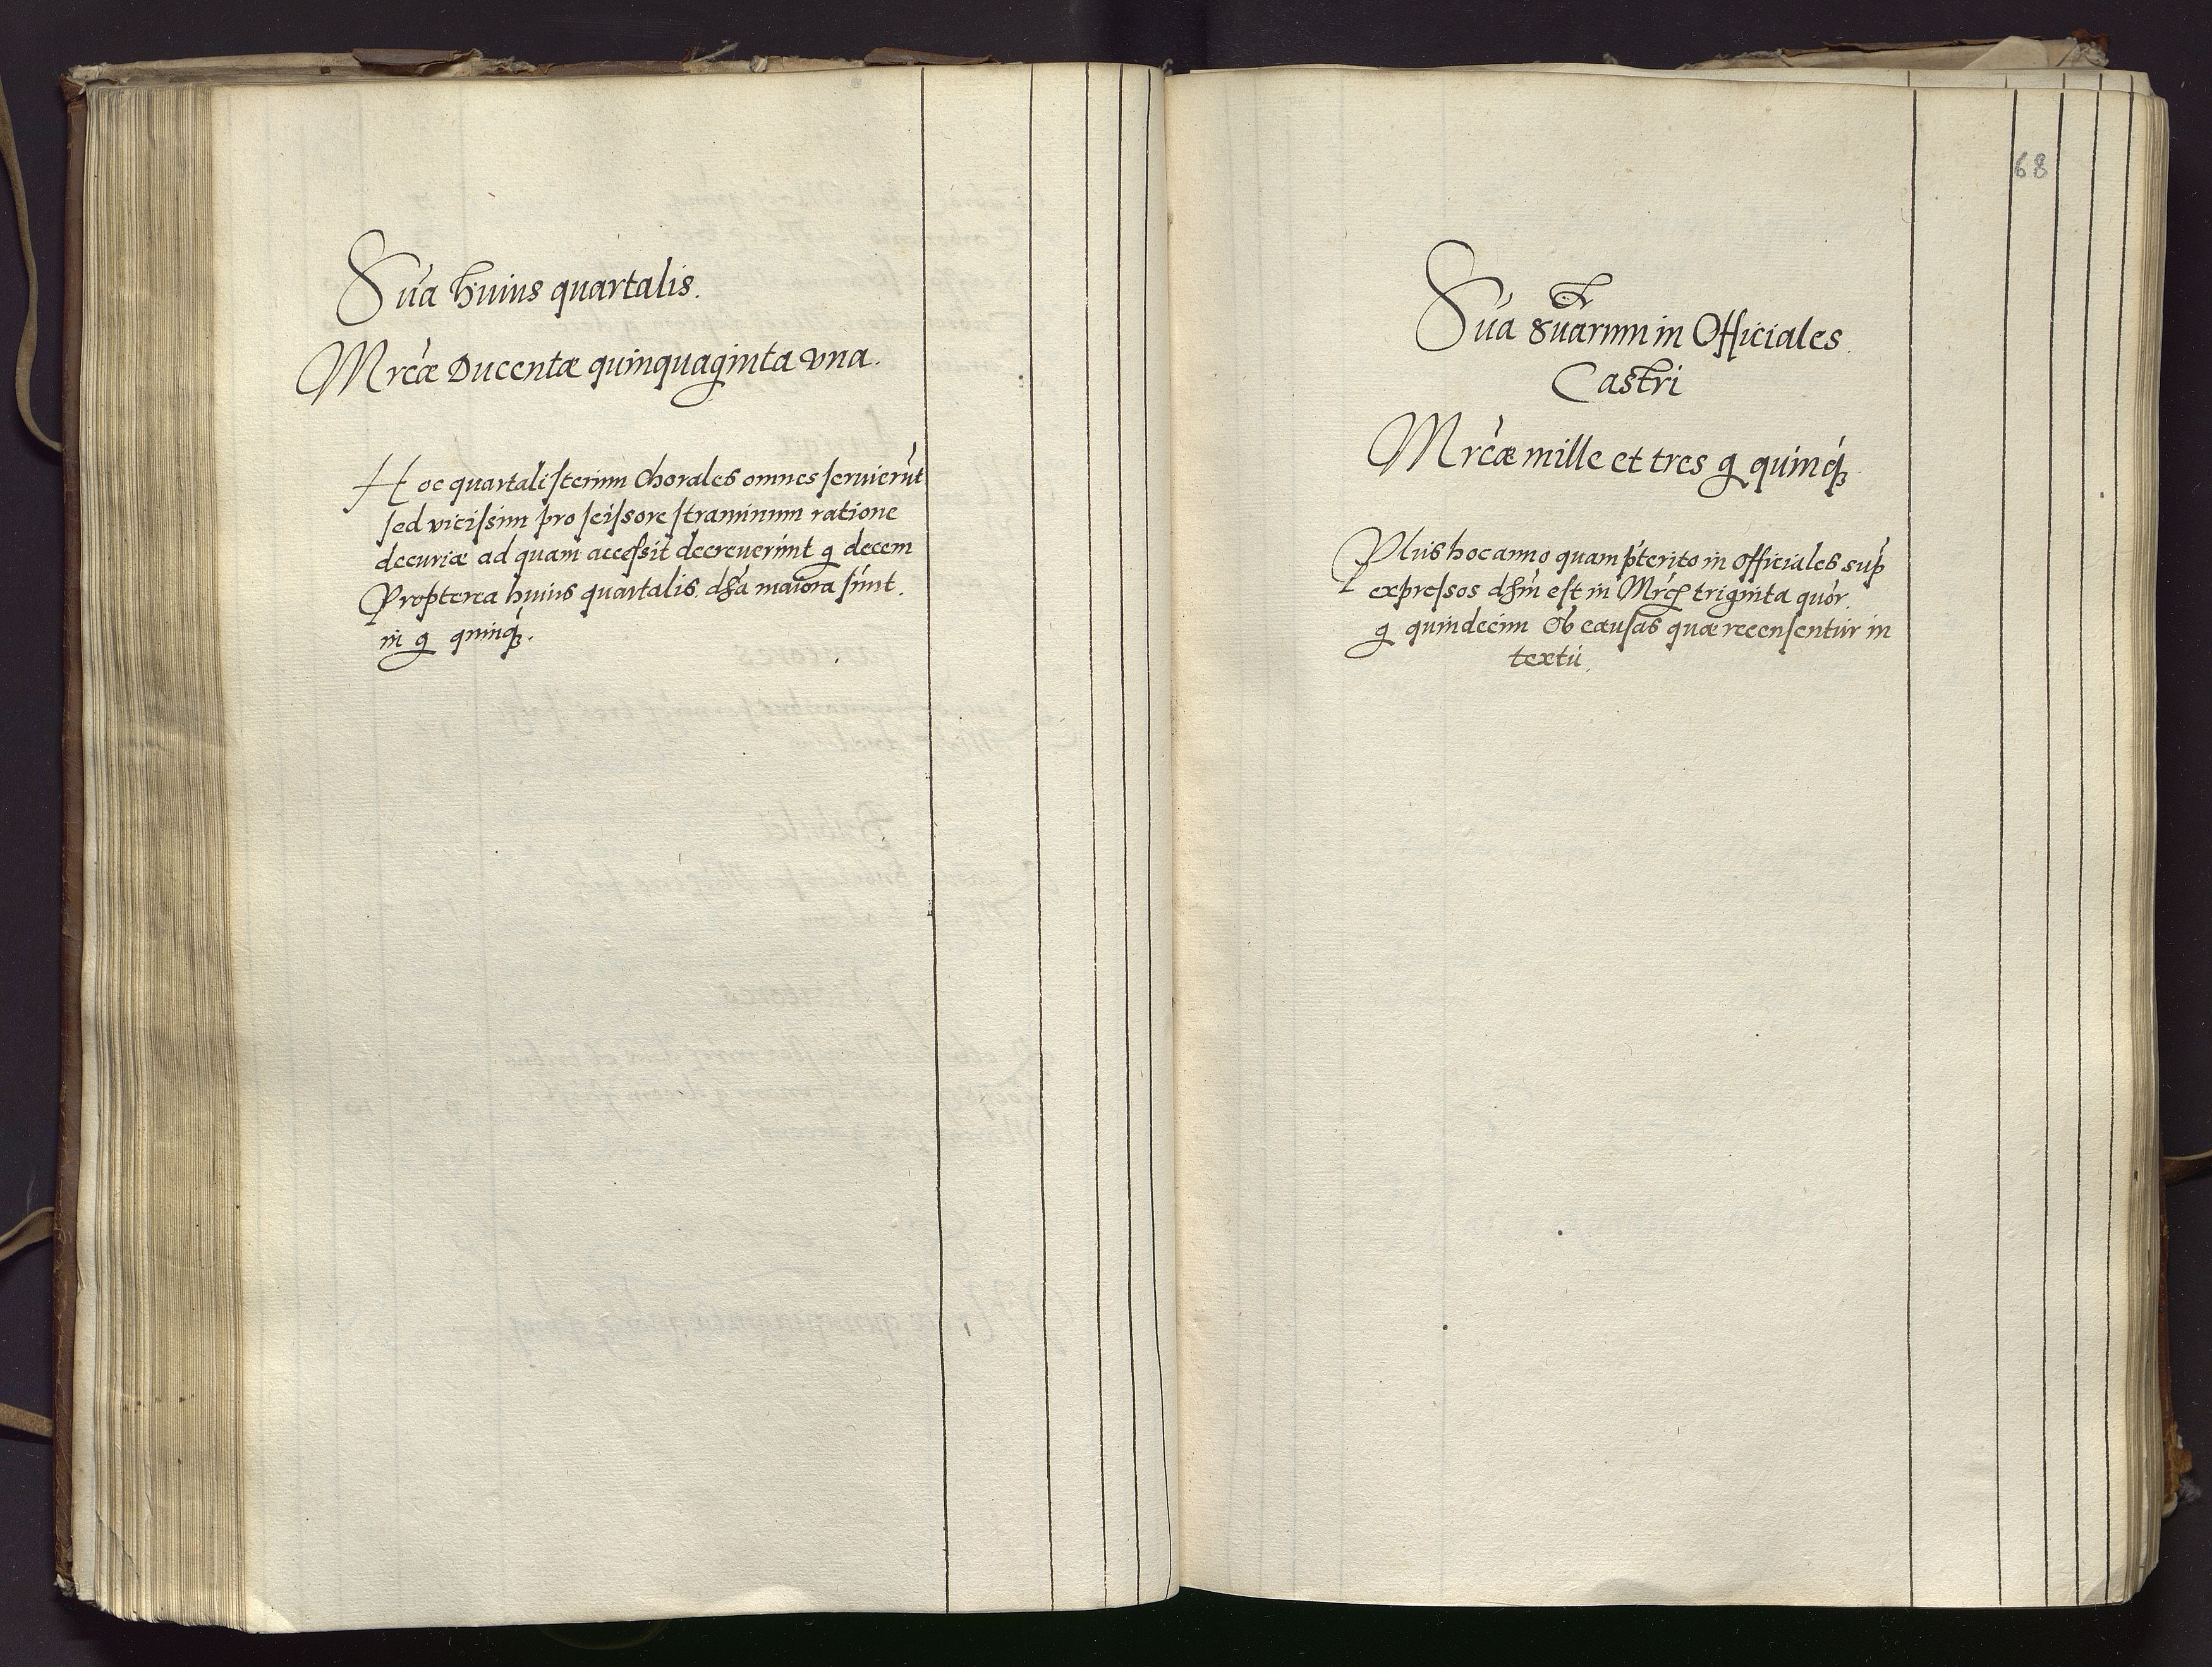 Sūa huius quartalis.
Mrcæ Ducentæ quinquaginta vna.
Hoc quartali iterum Chorales omnes seruierūt
sed vicissim pro scissore straminum ratione
decuriæ ad quam accessit decreuerint g decem
Propterea huius quartalis dr̄a maiora sunt.
in g quinq.
68
Sūa in Officiales
Castri
Mrcæ mille et tres g quinq
Pluis hoc anno quam p̄terito in Officiales sup
expressos est in Mrcis triginta quor.
g quindecim Ob causas quæ recensentur in
textu.